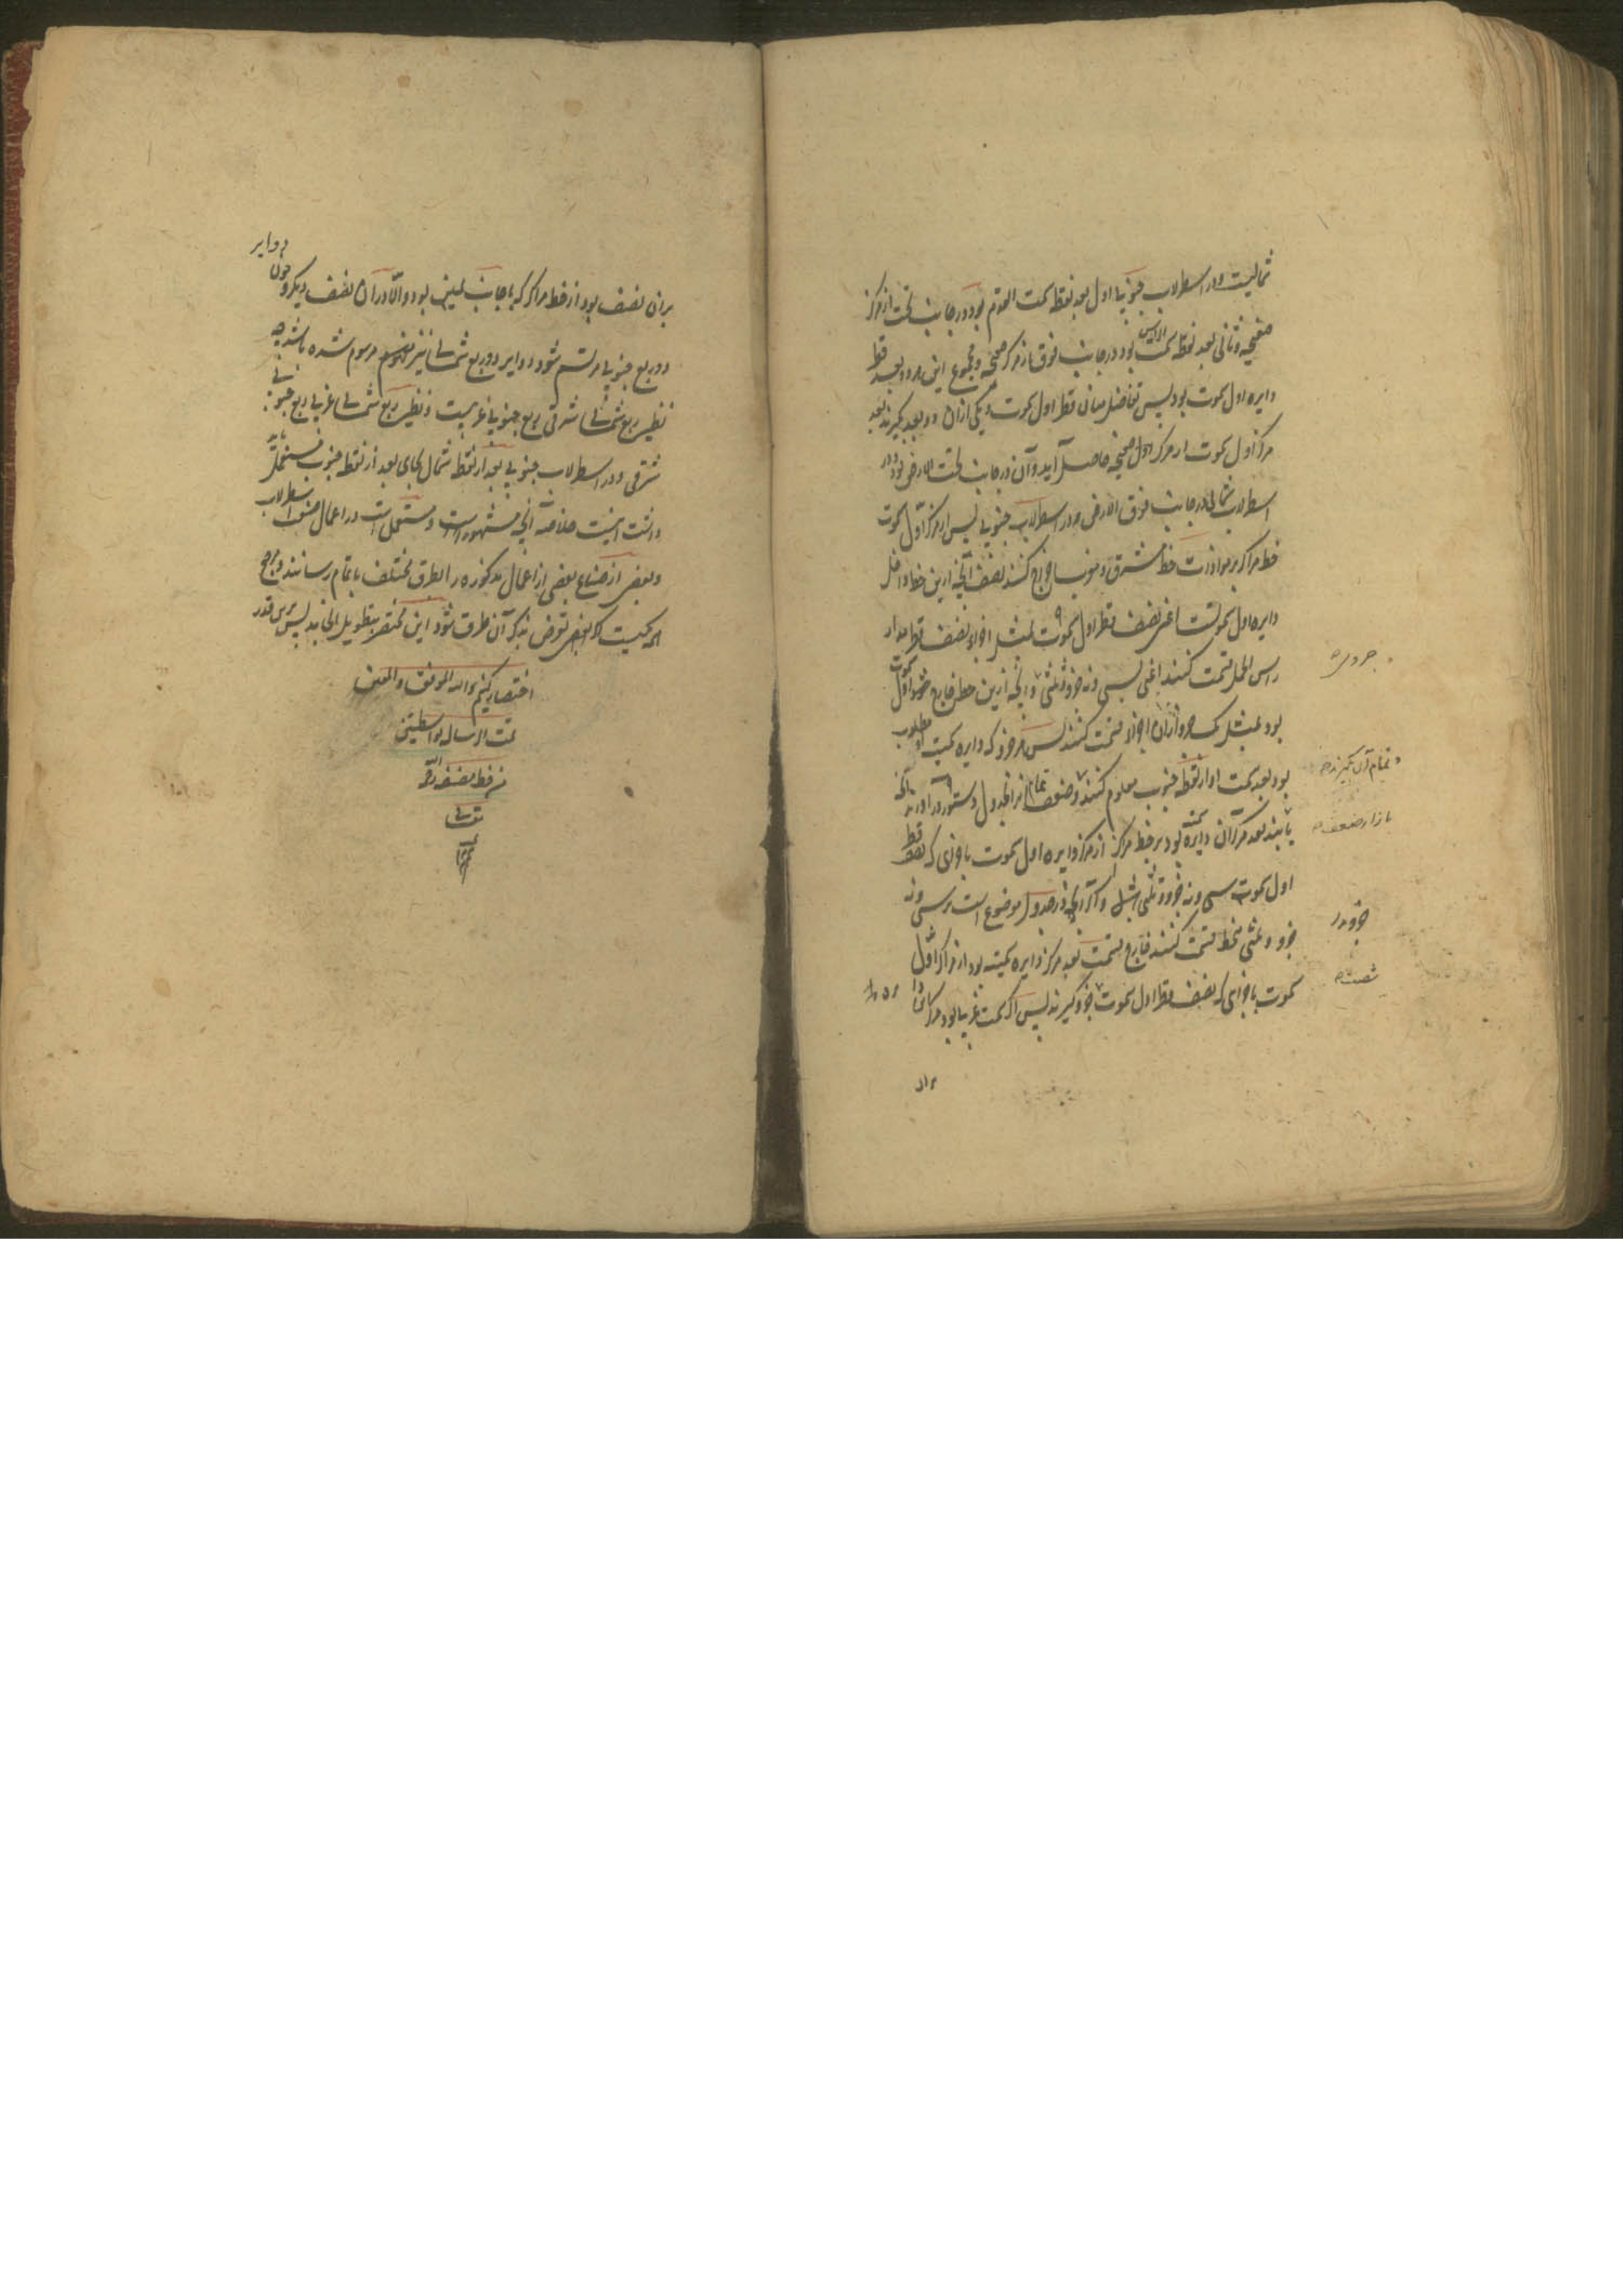 شمالیست و در اسطرلاب جنوبی اول بعد نقطه سمت القدم بود در جانب تحت از مرکز
صفیحه و ثانی بعد نقطه سمت الراس بود در جانب فوق از مرکز صفیحه و مجموع این هر دو بعد قطر
دایره اول سموت بود پس تفاضل میان نصف قطر اول سموت و یکی ازان دو بعد بگیرند بعد
مرکز اول سموت از مرکز صفیحه حاصل آید و آن در جانب تحت الارض بود در
اسطرلاب شمالی و در جانب فوق الارض بود در اسطرلاب جنوبی پس از مرکز اول سموت
خط مراکز بر موازات خط مشرق و مغرب اخراج کنند نصف آنچه ازین خط داخل
دایره اول سموتست اعنی نصف قطر اول سموت بمثل اجزاء نصف قطر مدار
راس الحمل قسمت کنند اعنی بسی و نه جزو و ثلثی و آنچه ازین خط خارج اول سموت
بود بمثل یک جزو ازان اجزا قسمت کنند پس هر جزو که دایره سمت او مطلوب
بود بعد سمت او از نقطه جنوب معلوم کنند و ضعف تمام در جدول دستور در آورند آنچه
یابند بعد مرکز آن دایره بود بر خط مراکز از مرکز دایره اول سموت باجزای که نصف قطر
اول سموت سی و نه جزو و ثلثی باشد و اگر آنچه در جدول موضوع است بر سی و نه
جزو و ثلثی منحط قسمت کنند خارج قسمت بعد مرکز دایره سمتیه بود از مرکز اول
سموت باجزای که نصف قطر اول سموت جزو گیرند پس اگر سمت غربی بود مرکز
و تمام آن بگیرند
بازار ضعف
شصت
بران نصف بود از خط مراکز که بجانب یمین بود و الا در آن نصف دیگر و چون دوایر
دو ربع جنوبی مرتسم شود دوایر دو ربع شمالی نیز مرسوم شده باشد چه
نظیر ربع شمالی شرقی ربع جنوبی غربیست و نظیر ربع شمالی غربی ربع جنوبی
شرقی و در اسطرلاب جنوبی بعد از نقطه شمال بجای بعد از نقطه جنوب مستعمل باید
داشت اینست خلاصه آنچه مشهور است و مستعمل است در اعمال صنعت اسطرلاب
و بعضی از صناع بعضی از اعمال مذکوره را بطرق مختلف باتمام رسانند و مرجع
همه یکیست اگر بعضی تعرض بذکر آن طرق شود این مختصر بتطویل انجامد پس برین قدر
اختصار کنیم والله الموفق والمعین
تمت الرسالة
من خط مصنفه